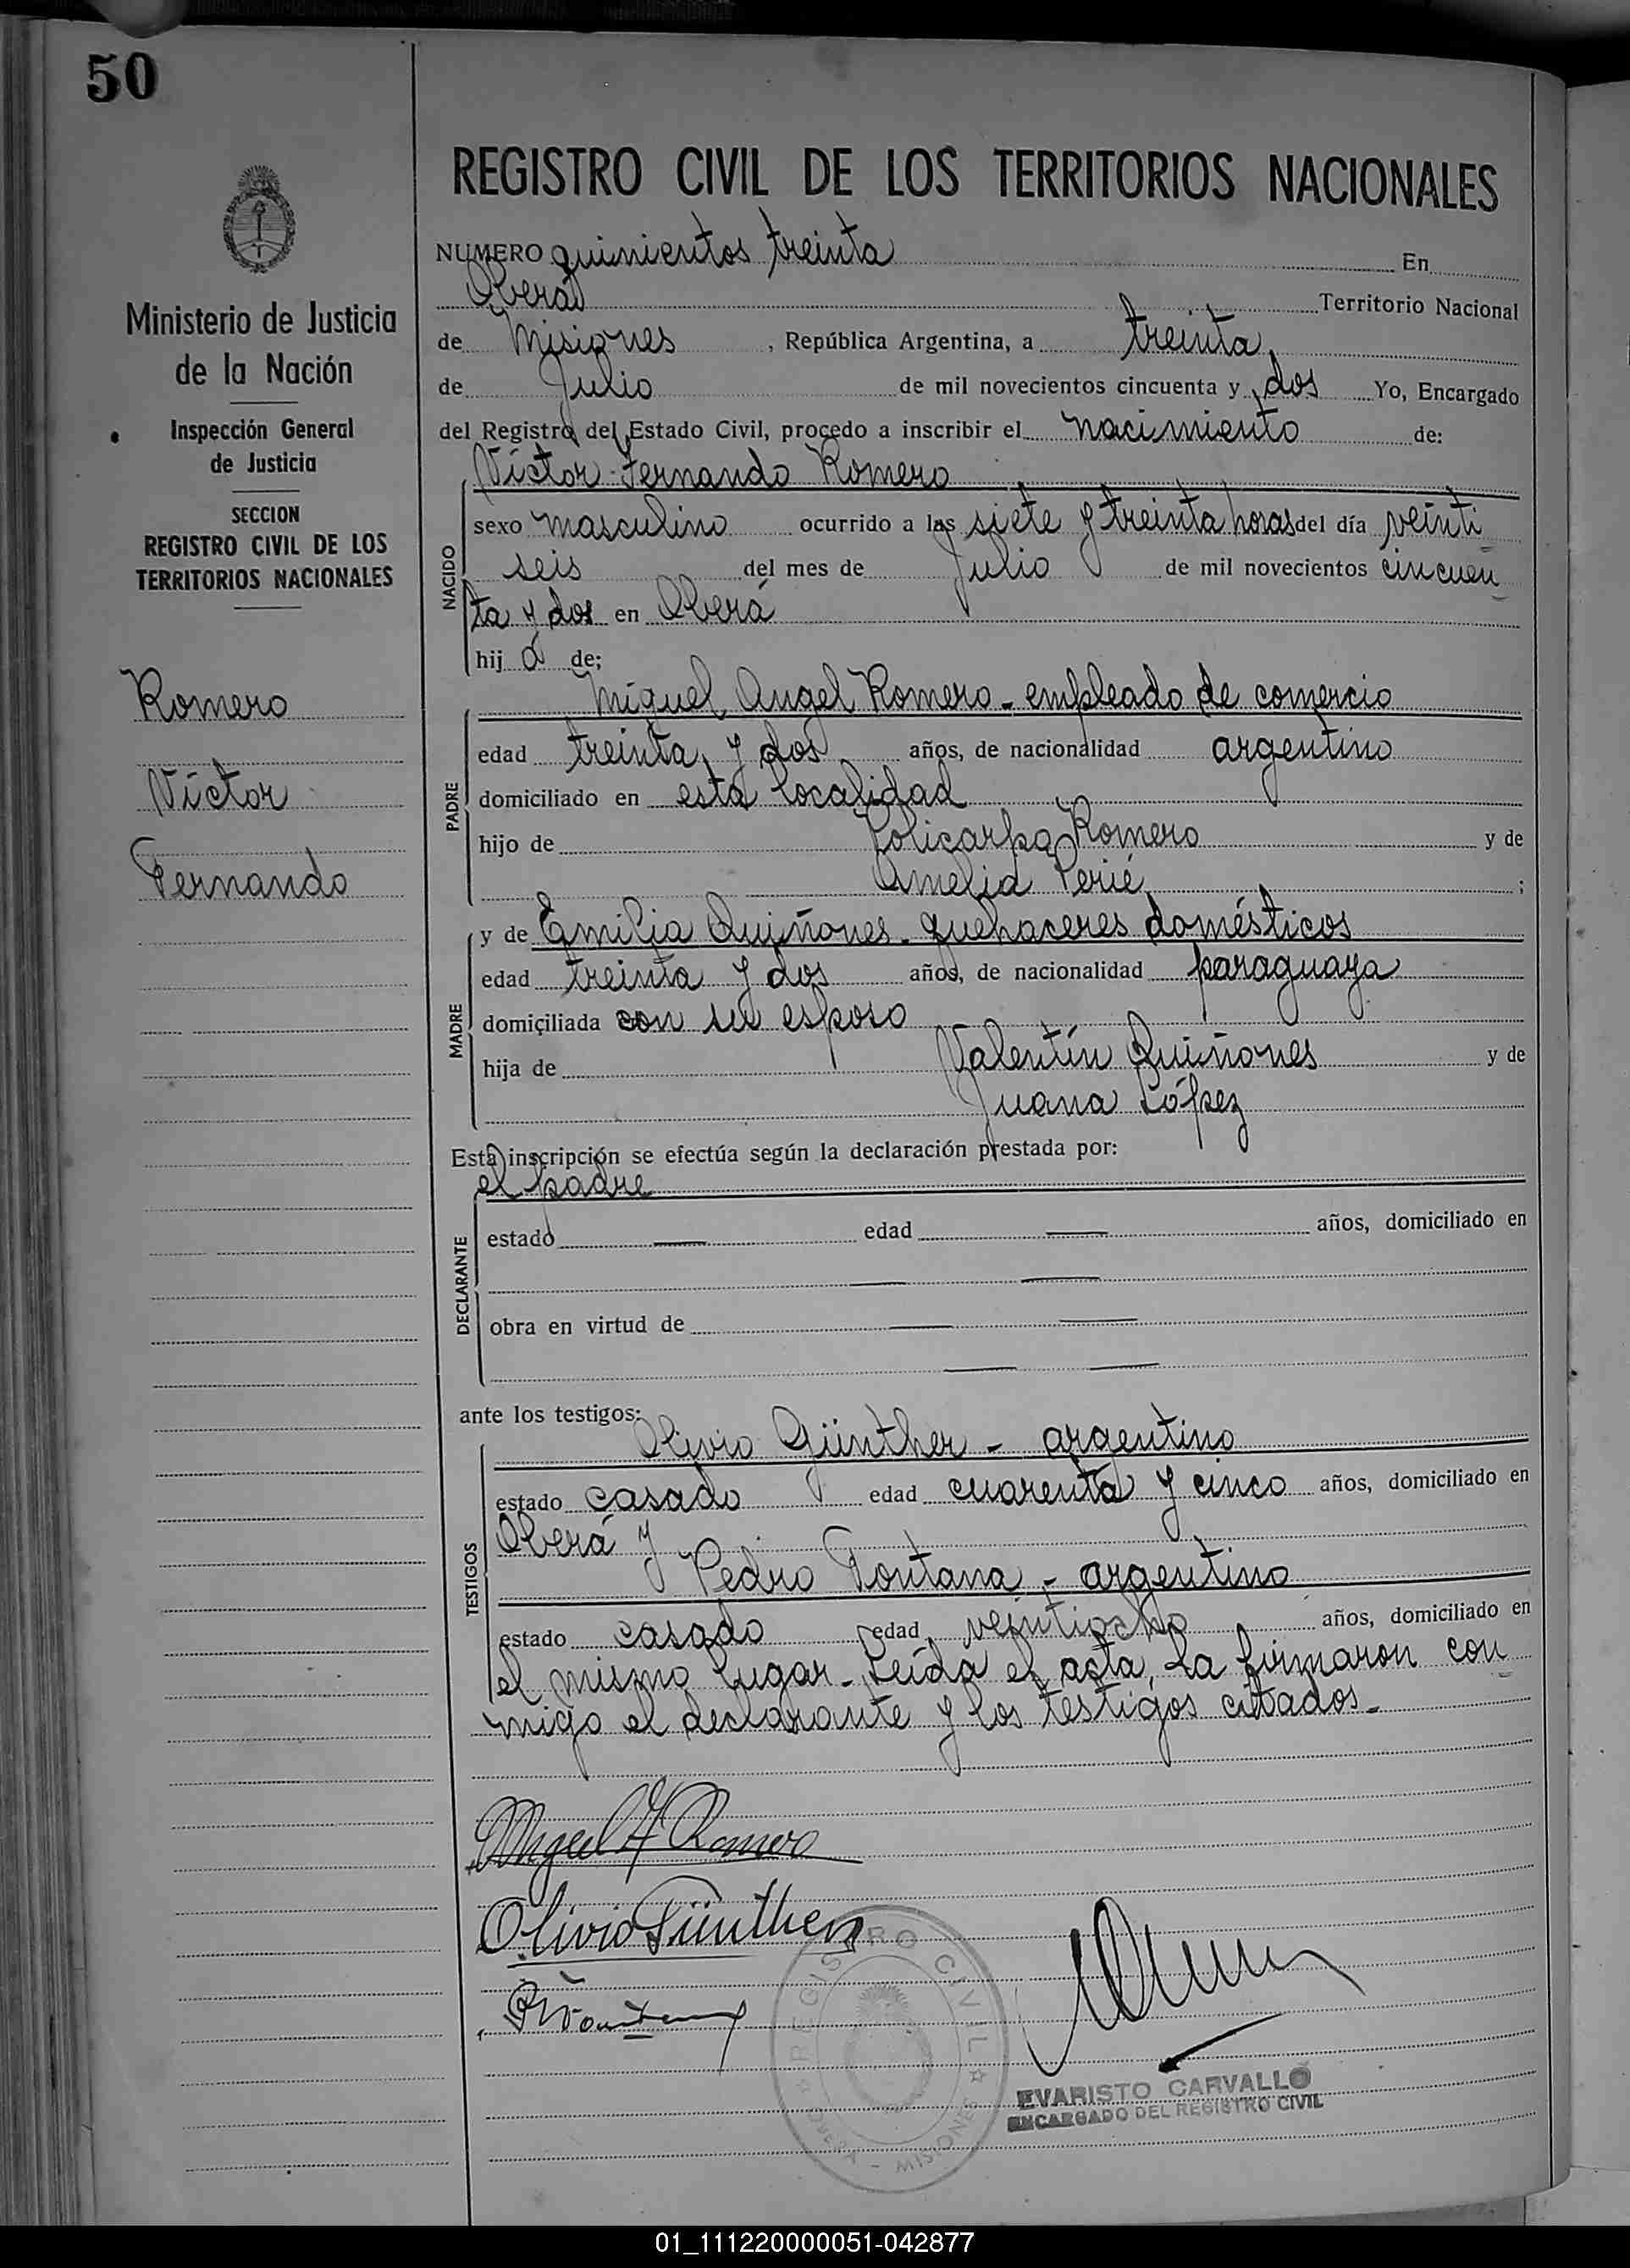 50
Ministerio de Justicia
de la Nación
Inspección General
de Justicia
SECCION
REGISTRO CIVIL DE LOS
TERRITORIOS NACIONALES
Romero
Víctor
Fernando
REGISTRO CIVIL DE LOS TERRITORIOS NACIONALES
NUMERO quinientos treinta En
Oberá Territorio Nacional
de Misiones, República Argentina, a treinta
de Julio de mil novecientos cincuenta y dos Yo, Encargado
del Registro del Estado Civil, procedo a inscribir el nacimiento de:
Víctor Fernando Romero
NACIDO
sexo masculino ocurrido a las siete y treinta horas del día veinti
seis del mes de Julio de mil novecientos cincuen
ta y dos en Oberá
hij o de;
PADRE
Miguel Angel Romero - empleado de comercio
edad treinta y dos años, de nacionalidad argentino
domiciliado en esta localidad
hijo de Policarpo Romero y de
Amelia Perié ;
MADRE
y de Emilia Quiñones - quehaceres domésticos
edad treinta y dos años, de nacionalidad paraguaya
domiciliada con su esposo
hija de Valentín Quiñones y de
Juana López
Esta inscripción se efectúa según la declaración prestada por:
el padre
DECLARANTE
estado — edad — años, domiciliado en
— —
obra en virtud de — —
— —
ante los testigos:
TESTIGOS
Olivio Günther - argentino
estado casado edad cuarenta y cinco años, domiciliado en
Oberá y
Pedro Fontana - argentino
estado casado edad veintiocho años, domiciliado en
el mismo lugar - Leída el acta, la firmaron con
migo el declarante y los testigos citados -
Miguel A Romero
Olivio Günther
REGISTRO CIVIL
OBERA - MISIONES
EVARISTO CARVALLO
ENCARGADO DEL REGISTRO CIVIL
01_111220000051-042877